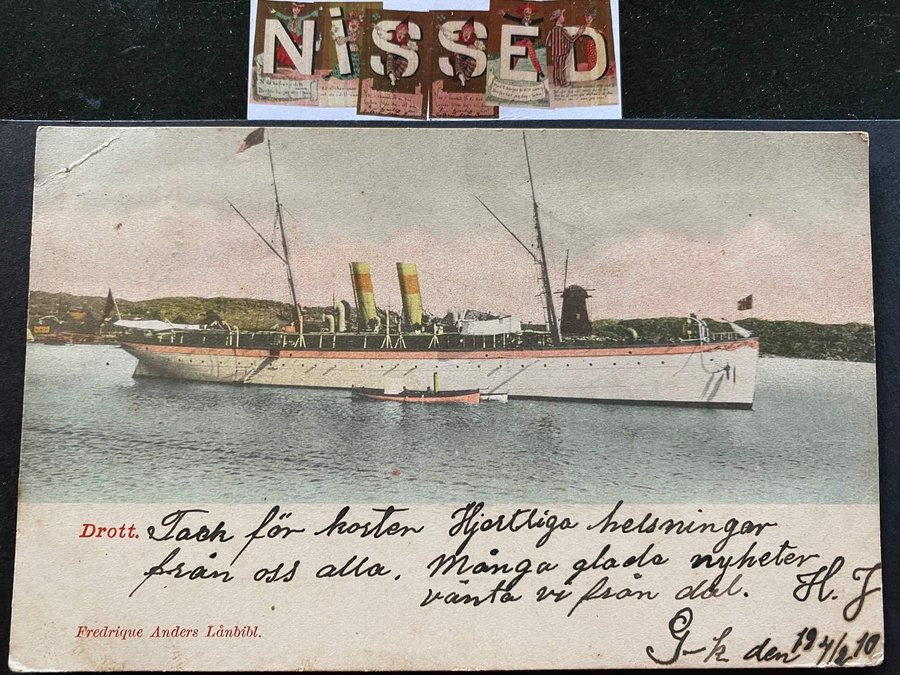 NiSSED
Drott. Tack för korten Hjertliga helsningar
från oss alla. Många glada nyheter
vänta vi från dal. H. J
Fredrique Anders Lånbibl.
G-k den 19 4/2 10